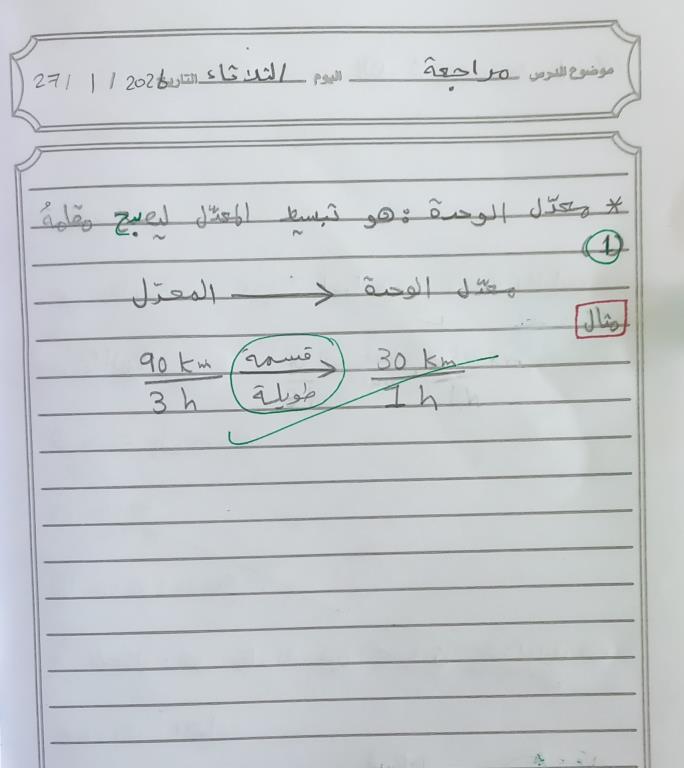 موضوع الدرس مراجعة اليوم الثلاثاء التاريخ 27 / 1 / 2026
* معدّل الوحدة : هو تبسيط المعدّل ليصبح مقامهُ
1
المعدّل → معدّل الوحدة
مثال
90 km قسمه 30 km
3 h طويلة 1 h